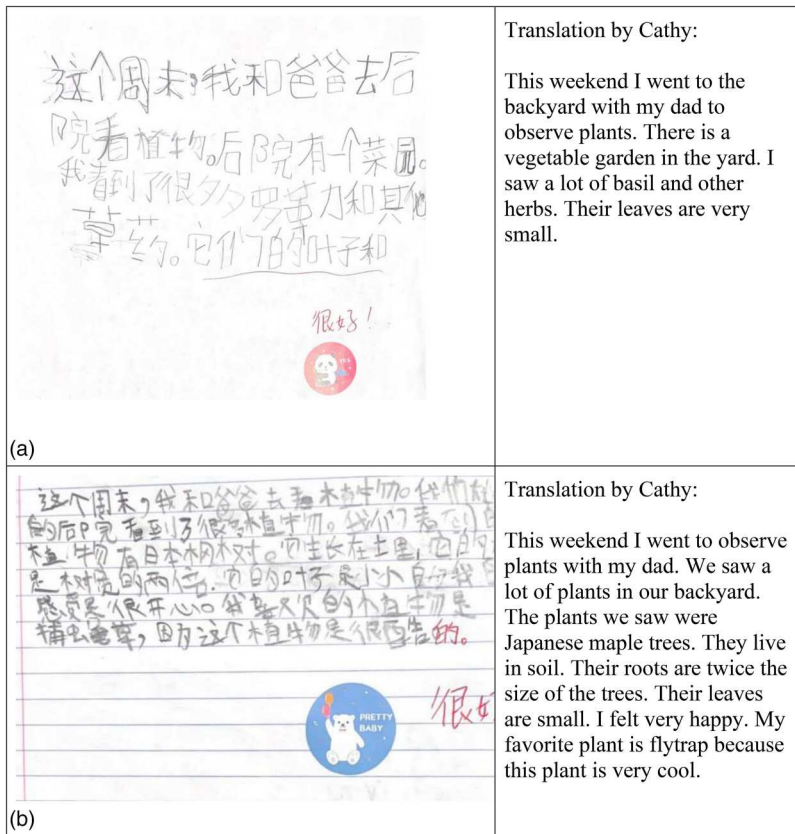 这个周末，我和爸爸去后
院看植物。后院有一个菜园。
我看到了很多多罗革力和其他
草药。它们的叶子和
很好！
(a)
Translation by Cathy:
This weekend I went to the
backyard with my dad to
observe plants. There is a
vegetable garden in the yard. I
saw a lot of basil and other
herbs. Their leaves are very
small.
这个周末，我和爸爸去看植物。我们
的后院看到了很多植物。我们看到
植物有日本枫树。它生长在土里，它的
是树宽的两倍.它的叶子是小小 我
感受是很开心。我喜欢的植物是
捕虫草，因为这个植物是很酷的。
PRETTY
BABY
很好
(b)
Translation by Cathy:
This weekend I went to observe
plants with my dad. We saw a
lot of plants in our backyard.
The plants we saw were
Japanese maple trees. They live
in soil. Their roots are twice the
size of the trees. Their leaves
are small. I felt very happy. My
favorite plant is flytrap because
this plant is very cool.